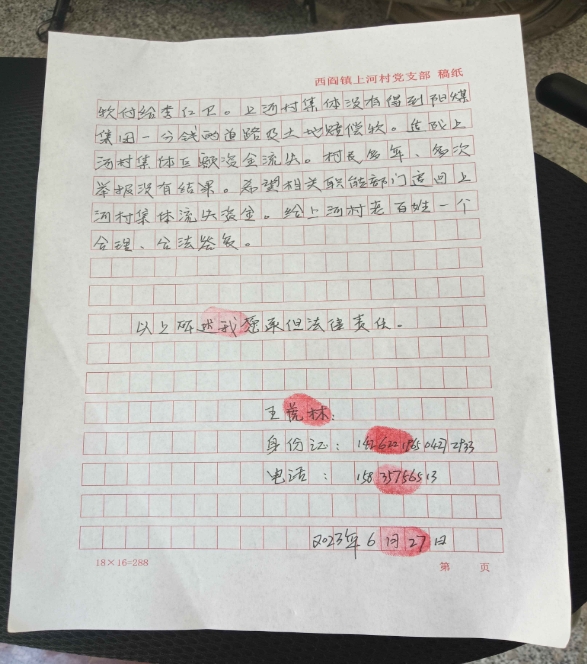 西阎镇上河村党支部 稿纸
款付给李红卫。上河村集体没有得到阳煤
集团一分钱的道路及土地赔偿款。造成上
河村集体巨额资金流失。村民多年、多次
举报没有结果。希望相关职能部门追回上
河村集体流失资金。给上河村老百姓一个
合理、合法答复。
以上所述我愿承但法律责任。
王虎林:
身份证:
电话:
2023年6月27日
18×16=288
第 页